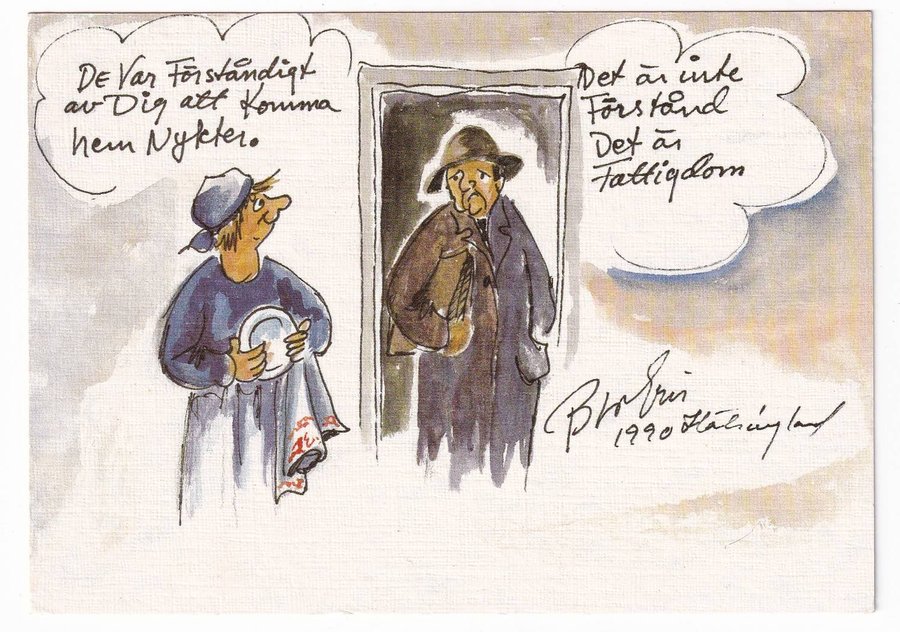 De Var Förståndigt
av Dig att Komma
hem Nykter.
Det är inte
Förstånd
Det är
Fattigdom
1990 Hälsingland